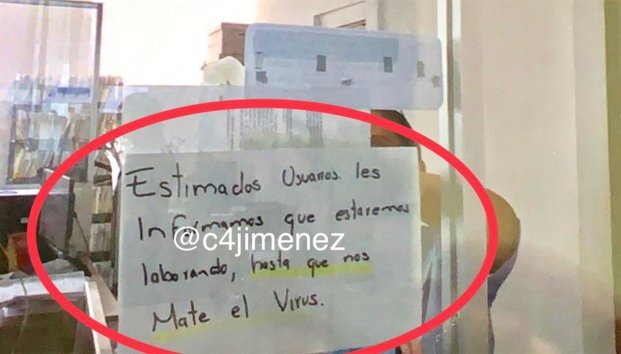 Estimados Usuarios les
Informamos que estaremos
@c4jimenez
laborando, hasta que nos
Mate el Virus.